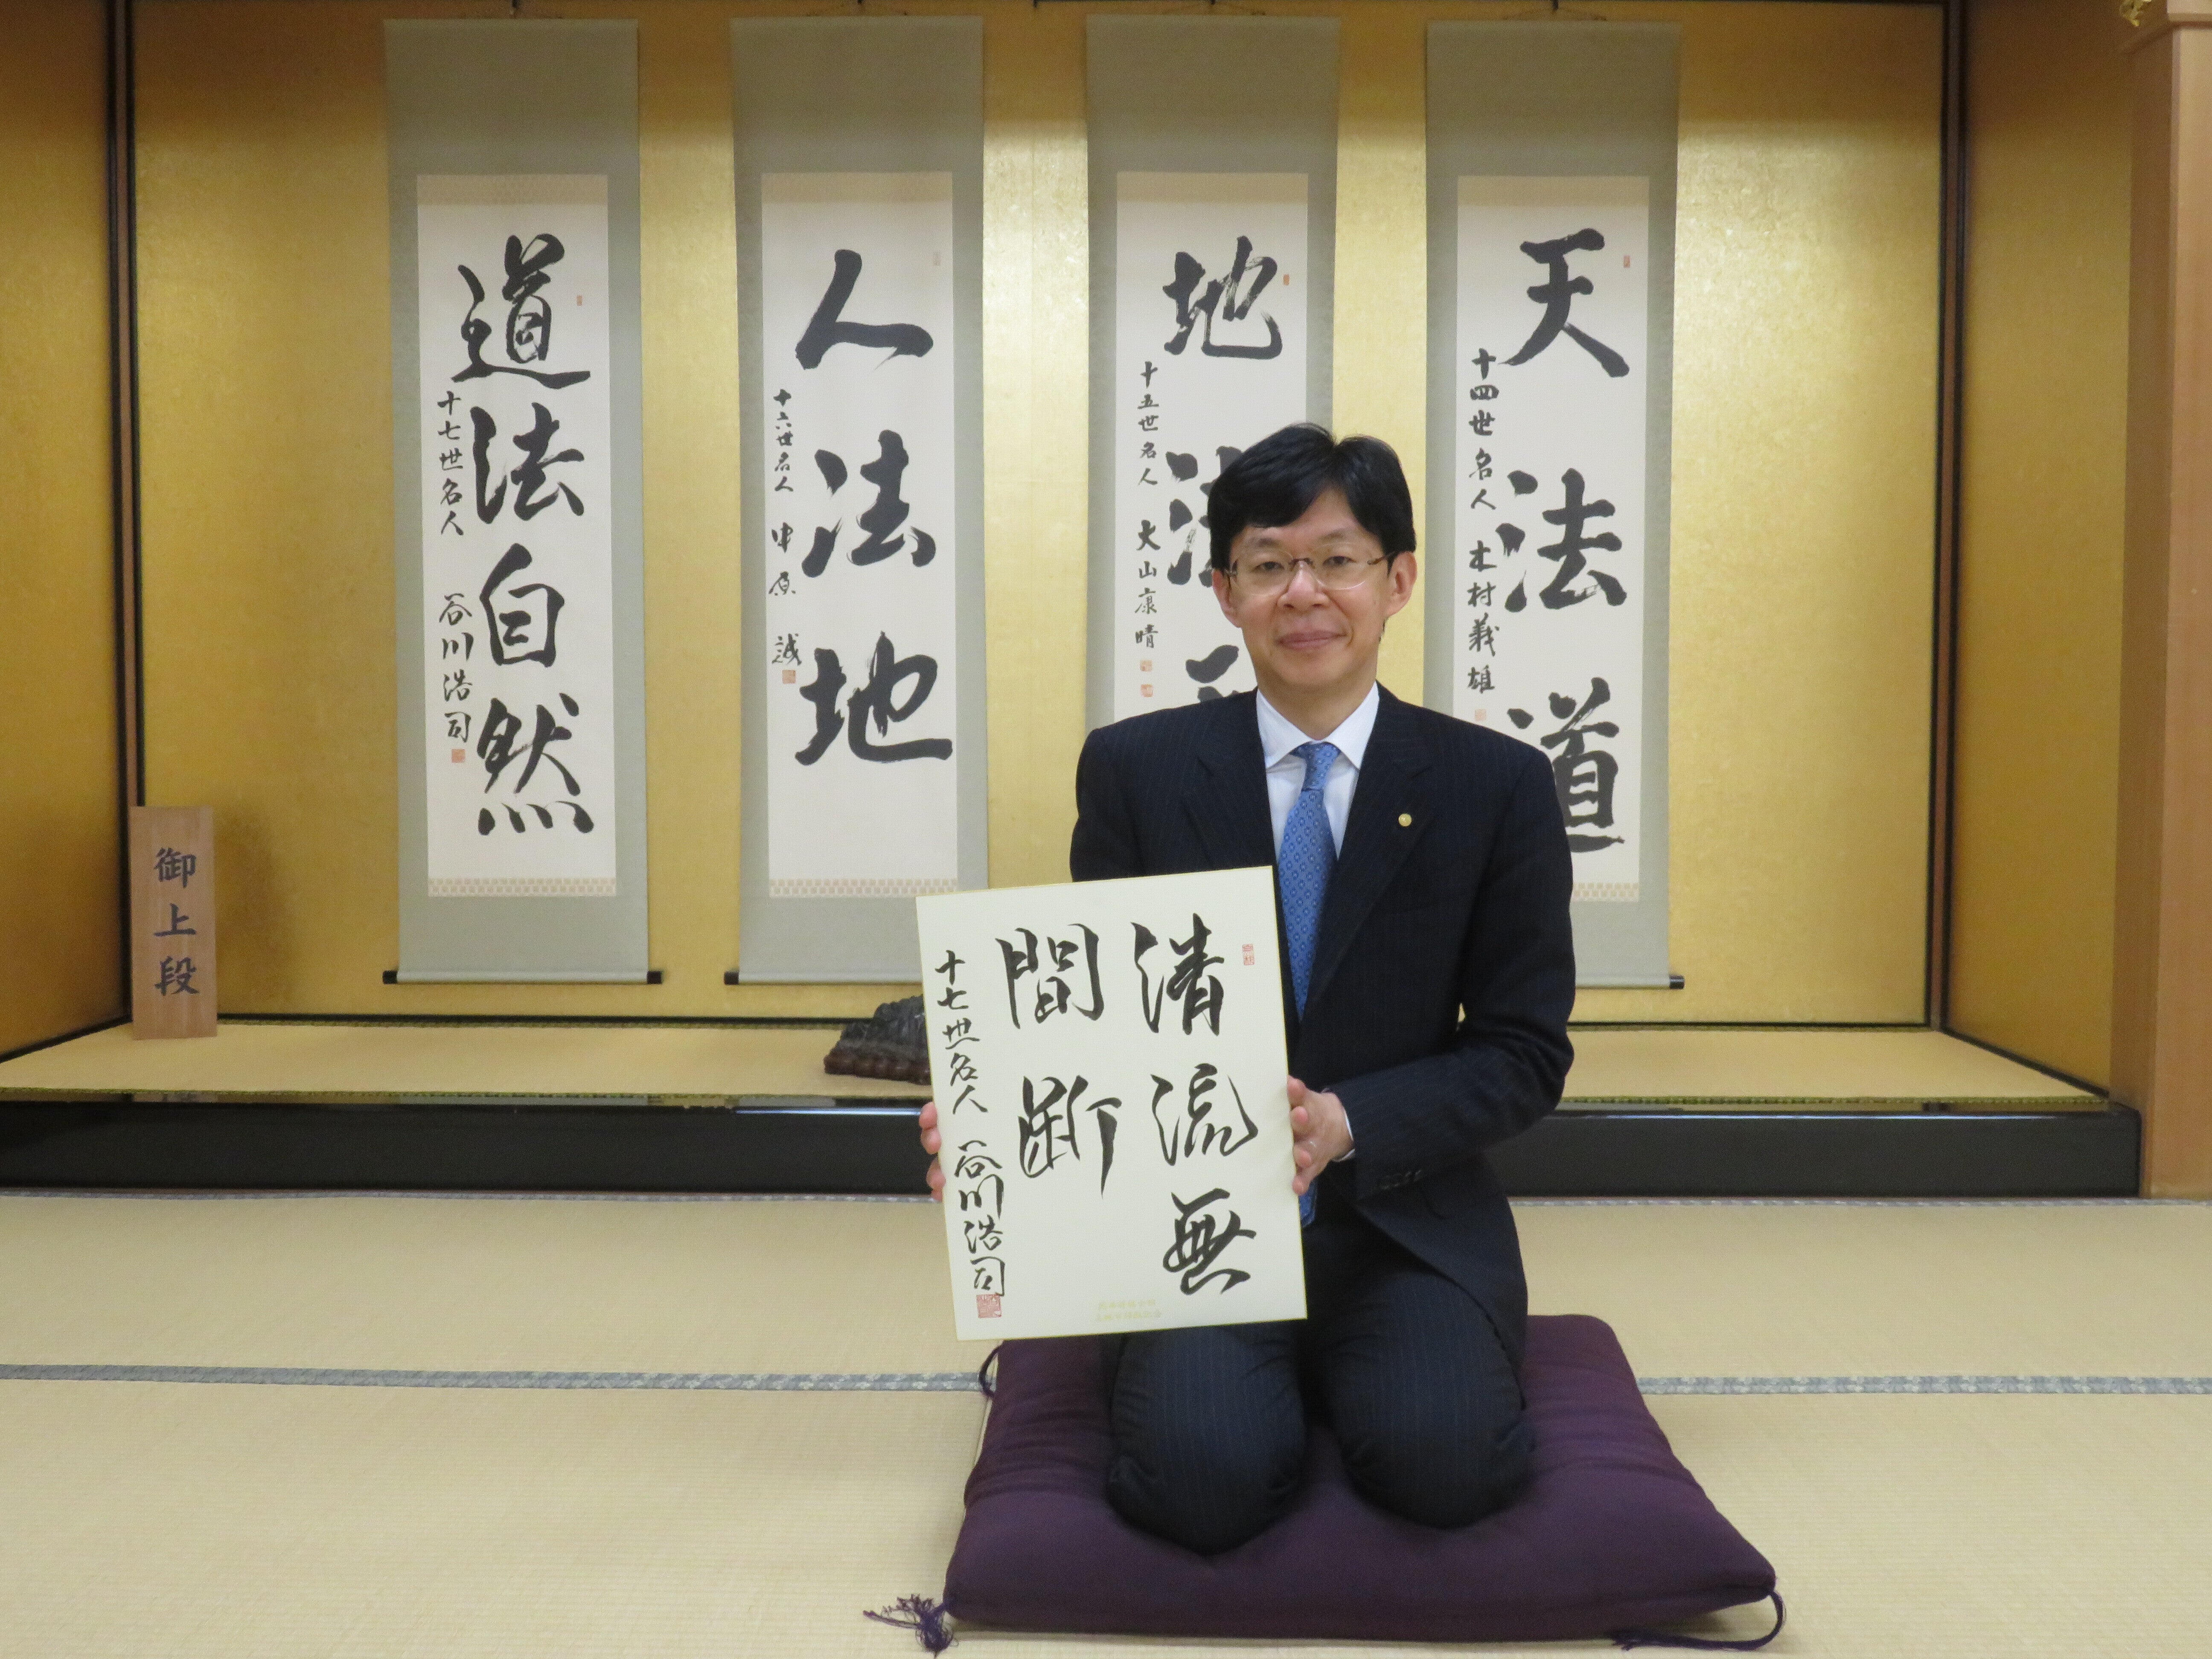 天法道
十四世名人 木村義雄
地法天
十五世名人 大山康晴
人法地
十六世名人 中原 誠
道法自然
十七世名人 谷川浩司
御上段
清流無
間断
十七世名人 谷川浩司